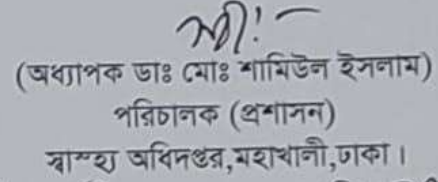 (অধ্যাপক ডাঃ মোঃ শামিউল ইসলাম)
পরিচালক (প্রশাসন)
স্বাস্থ্য অধিদপ্তর,মহাখালী,ঢাকা।